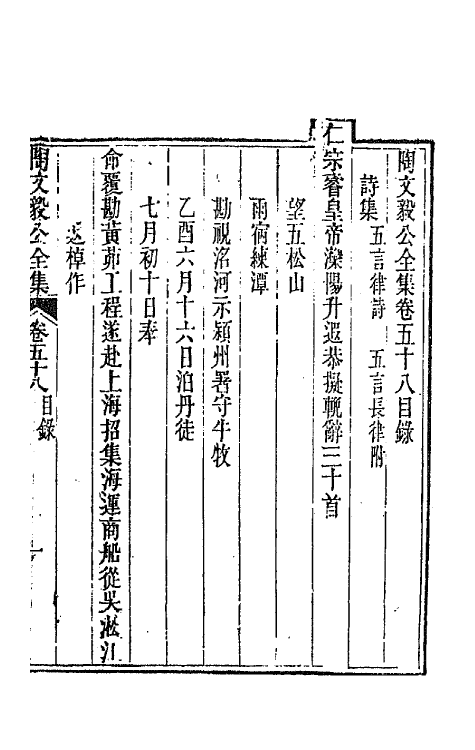 陶文毅公全集卷五十八目錄
詩集 五言律詩 五言長律附
仁宗睿皇帝灤陽升遐恭擬輓辭三十首
望五松山
雨宿練潭
勘視洺河示潁州署守牛牧
乙酉六月十六日泊丹徒
七月初十日奉
命覆勘黃茆工程遂赴上海招集海運商船從吳淞江
返棹作
陶文毅公全集 卷五十八 目錄 一